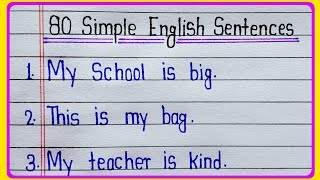 80 Simple English Sentences
1. My School is big.
2. This is my bag.
3. My teacher is kind.